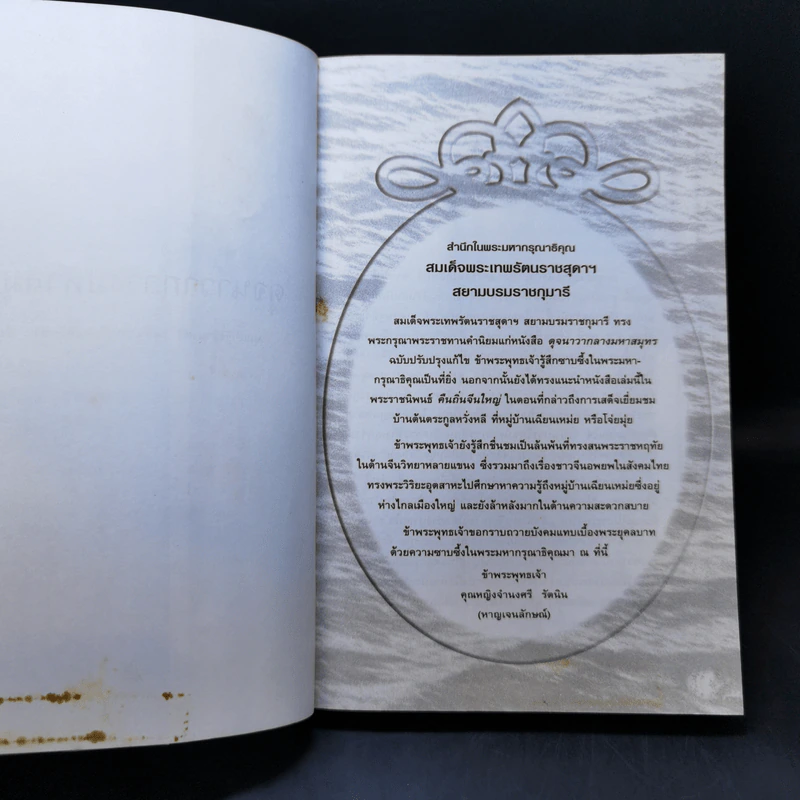 สำนึกในพระมหากรุณาธิคุณ
สมเด็จพระเทพรัตนราชสุดาฯ
สยามบรมราชกุมารี
สมเด็จพระเทพรัตนราชสุดาฯ สยามบรมราชกุมารี ทรง
พระกรุณาพระราชทานคำนิยมแก่หนังสือ ดุจนาวากลางมหาสมุทร
ฉบับปรับปรุงแก้ไข ข้าพระพุทธเจ้ารู้สึกซาบซึ้งในพระมหา-
กรุณาธิคุณเป็นที่ยิ่ง นอกจากนั้นยังได้ทรงแนะนำหนังสือเล่มนี้ใน
พระราชนิพนธ์ คืนถิ่นจีนใหญ่ ในตอนที่กล่าวถึงการเสด็จเยี่ยมชม
บ้านต้นตระกูลหวั่งหลี ที่หมู่บ้านเฉียนเหม่ย หรือโจ่ยมุ่ย
ข้าพระพุทธเจ้ายังรู้สึกชื่นชมเป็นล้นพ้นที่ทรงสนพระราชหฤทัย
ในด้านจีนวิทยาหลายแขนง ซึ่งรวมมาถึงเรื่องชาวจีนอพยพในสังคมไทย
ทรงพระวิริยะอุตสาหะไปศึกษาหาความรู้ถึงหมู่บ้านเฉียนเหม่ยซึ่งอยู่
ห่างไกลเมืองใหญ่ และยังล้าหลังมากในด้านความสะดวกสบาย
ข้าพระพุทธเจ้าขอกราบถวายบังคมแทบเบื้องพระยุคลบาท
ด้วยความซาบซึ้งในพระมหากรุณาธิคุณมา ณ ที่นี้
ข้าพระพุทธเจ้า
คุณหญิงจำนงศรี รัตนิน
(หาญเจนลักษณ์)